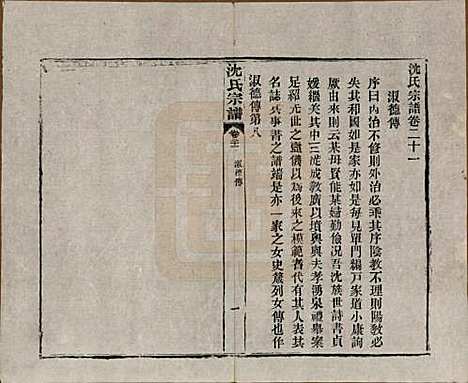 沈氏宗譜卷二十一
淑德傳
序曰內治不修則外治必乖其序陰教不理則陽教必
失其和國如是家亦如是每見單門編戶家道小康詢
厥由來則云某母賢能某婦勤儉況吾沈族世詩書貞
媛繼美其中三遷成教廣以墳輿與夫孝湧泉禮舉案
足褘光此之壼儀以為後來之模範耆代有其人表其
名誌其事書之譜端是亦一家之女史箴列女傳也作
淑德傳第八
沈氏宗譜
卷二十一
淑德傳
一